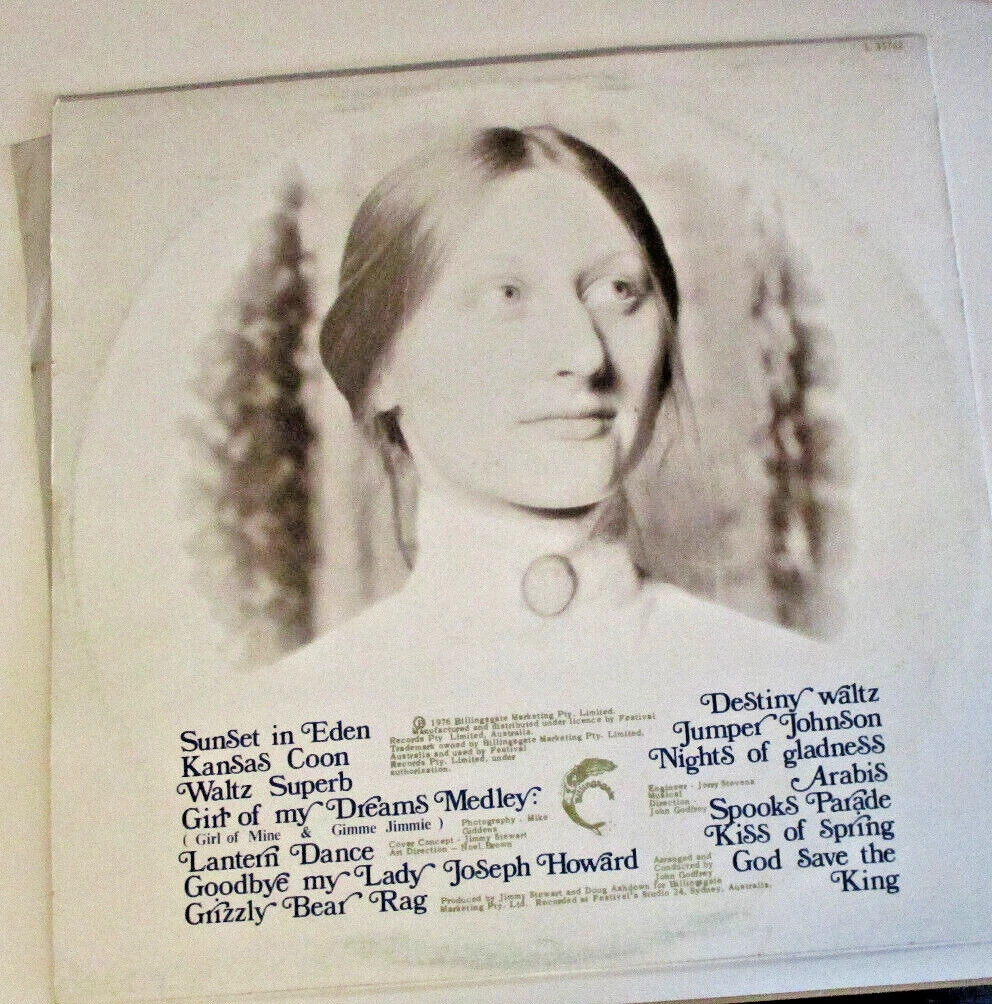 L 35763
Sunset in Eden
Kansas Coon
Waltz Superb
Girl of my Dreams Medley:
( Girl of Mine & Gimme Jimmie )
Lantern Dance
Goodbye my Lady Joseph Howard
Grizzly Bear Rag
℗ 1976 Billingsgate Marketing Pty. Limited.
Manufactured and distributed under licence by Festival
Records Pty. Limited, Australia.
Trademark owned by Billingsgate Marketing Pty. Limited,
Australia and used by Festival
Records Pty. Limited, under
authorisation.
Photography - Mike
Giddens
Cover Concept - Jimmy Stewart
Art Direction - Noel Brown
Engineer - Jerry Stevens
Musical
Direction -
John Godfrey
Arranged and
Conducted by
John Godfrey
Produced by Jimmy Stewart and Doug Ashdown for Billingsgate
Marketing Pty. Ltd. Recorded at Festival's Studio 24, Sydney, Australia.
Destiny waltz
Jumper Johnson
Nights of gladness
Arabis
Spooks Parade
Kiss of Spring
God Save the
King